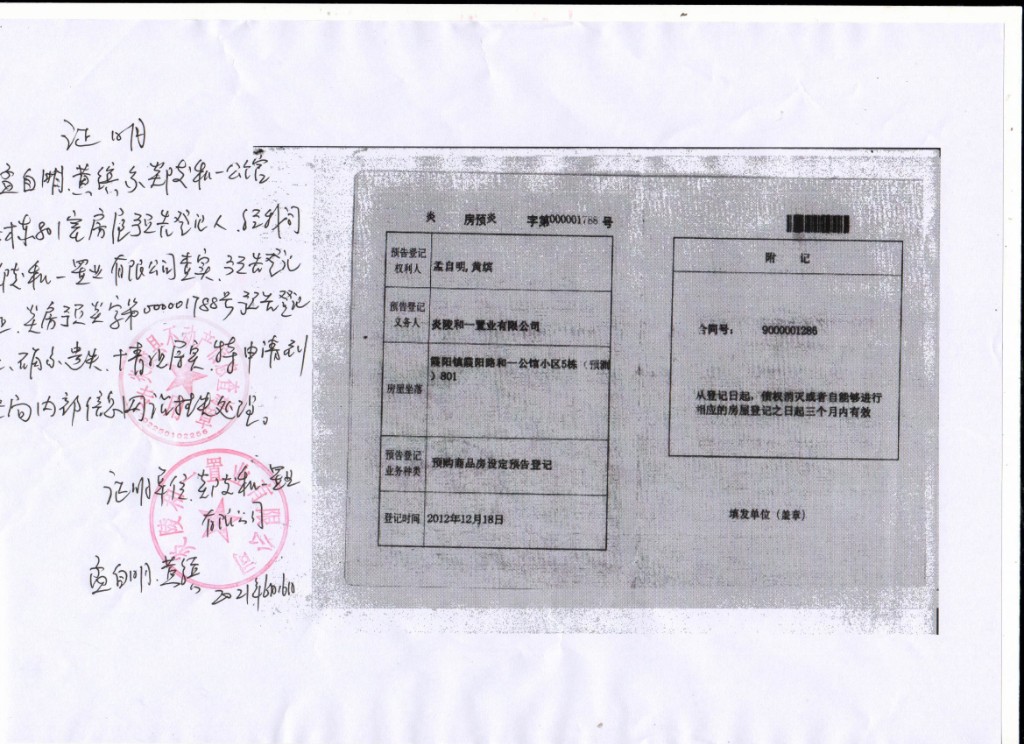 证明
孟自明.黄缤系炎陵和一公馆
栋801室房屋预告登记人.经我司
陵和一置业有限公司查实.预告登记
炎房预炎字第000001788号预告登记
确系遗失.情况属实.特申请到
内部信息网给挂失处理。
证明单位:炎陵和一置业
有限公司
孟自明.黄缤
炎 房预炎 字第000001788 号
预告登记
权利人
孟自明,黄缤
预告登记
义务人
炎陵和一置业有限公司
房屋坐落
霞阳镇霞阳路和一公馆小区5栋（预测
）801
预告登记
业务种类
预购商品房设定预告登记
登记时间
2012年12月18日
附 记
合同号： 9000001286
从登记日起，债权消灭或者自能够进行
相应的房屋登记之日起三个月内有效
填发单位（盖章）